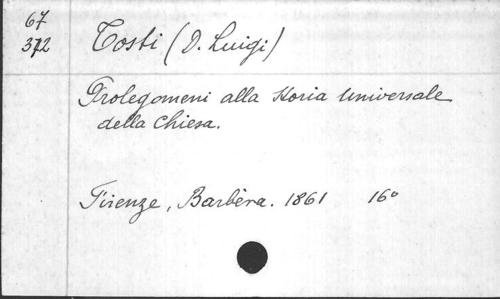 67
372
Tosti (D. Luigi)
Prolegomeni alla Storia universale
della Chiesa.
Firenze, Barbèra. 1861 16°